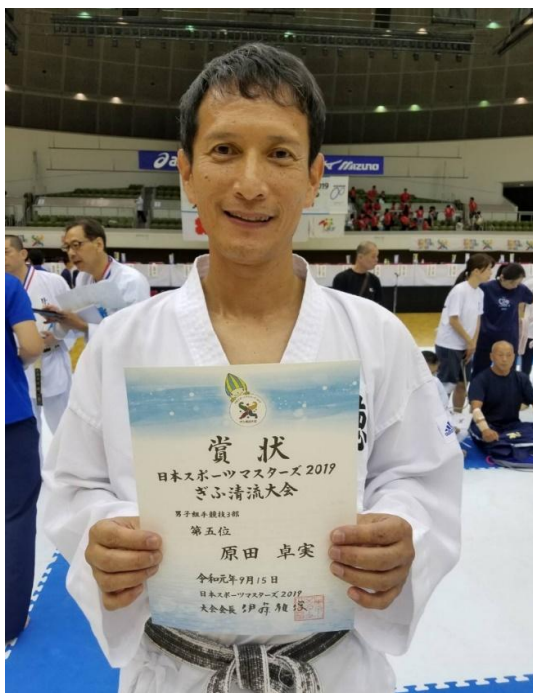 asics
MIZUNO
2019
賞状
日本スポーツマスターズ2019
ぎふ清流大会
男子組手競技3部
第五位
原田 卓実
令和元年9月15日
日本スポーツマスターズ2019
大会会長
adidas